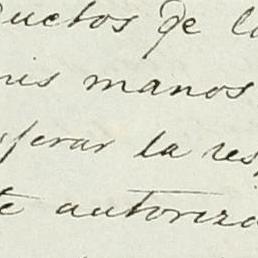 ductos de l
mis manos
sferar la res
te autoriza